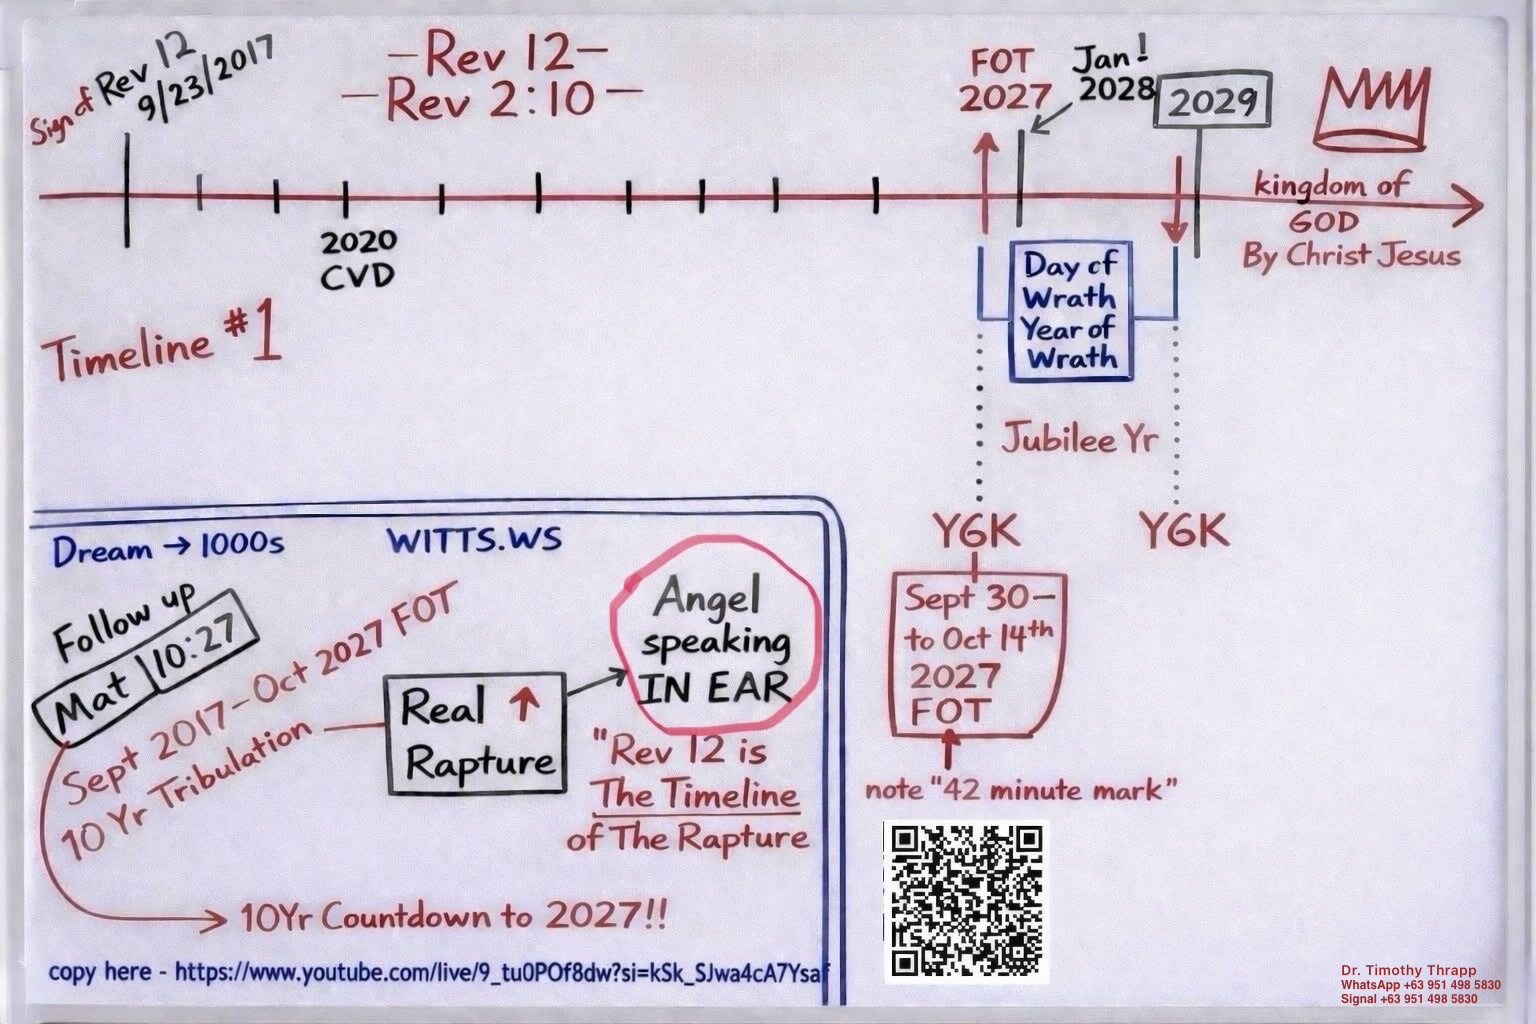 Sign of Rev 12
9/23/2017
—Rev 12—
—Rev 2:10—
FOT
2027
Jan!
2028
2029
kingdom of
GOD
By Christ Jesus
2020
CVD
Timeline #1
Day of
Wrath
Year of
Wrath
Jubilee Yr
Y6K
Y6K
Sept 30—
to Oct 14th
2027
FOT
note "42 minute mark"
Dream → 1000s
WITTS.WS
Follow up
Mat 10:27
Sept 2017-Oct 2027 FOT
10 Yr Tribulation
Real ↑
Rapture
Angel
speaking
IN EAR
"Rev 12 is
The Timeline
of The Rapture
10Yr Countdown to 2027!!
copy here - https://www.youtube.com/live/9_tu0POf8dw?si=kSk_SJwa4cA7Ysaf
Dr. Timothy Thrapp
WhatsApp +63 951 498 5830
Signal +63 951 498 5830